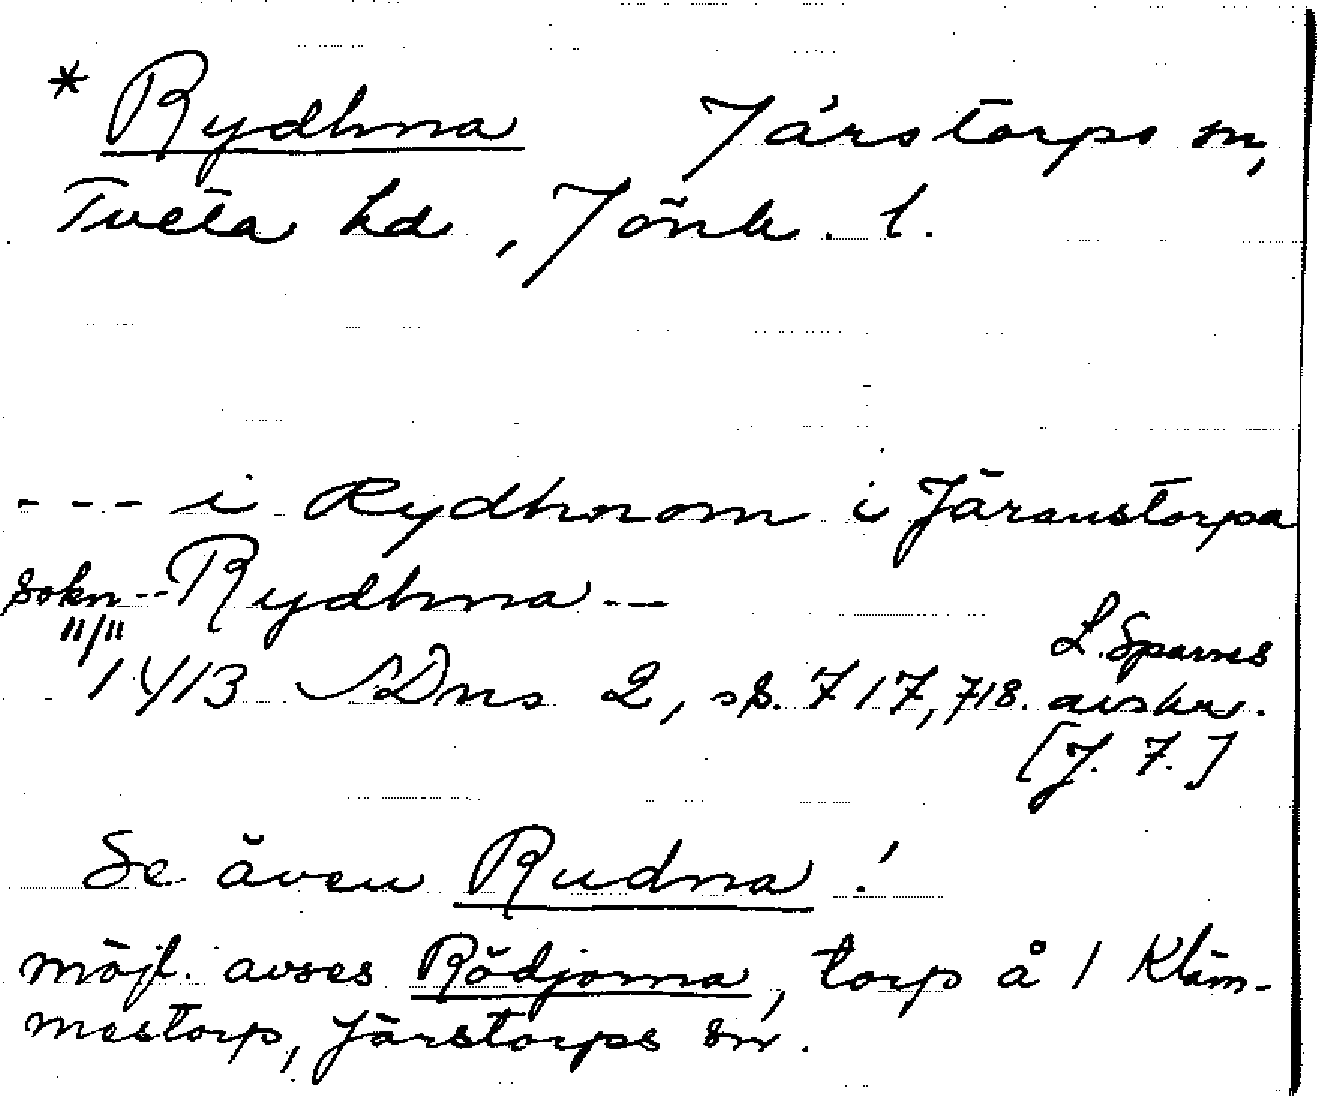 * Rydhna Järstorps sn,
Tveta hd, Jönk. l.
--- i Rydhnom i Järanstorpa
sokn -- Rydhna --
11/11
1413 SDns 2, sp. 717, 718. L. Sparres
avskr.
[J. F.]
Se även Rudna!
möjl. avses Rödjorna, torp å 1 Kläm-
mestorp, Järstorps sn.